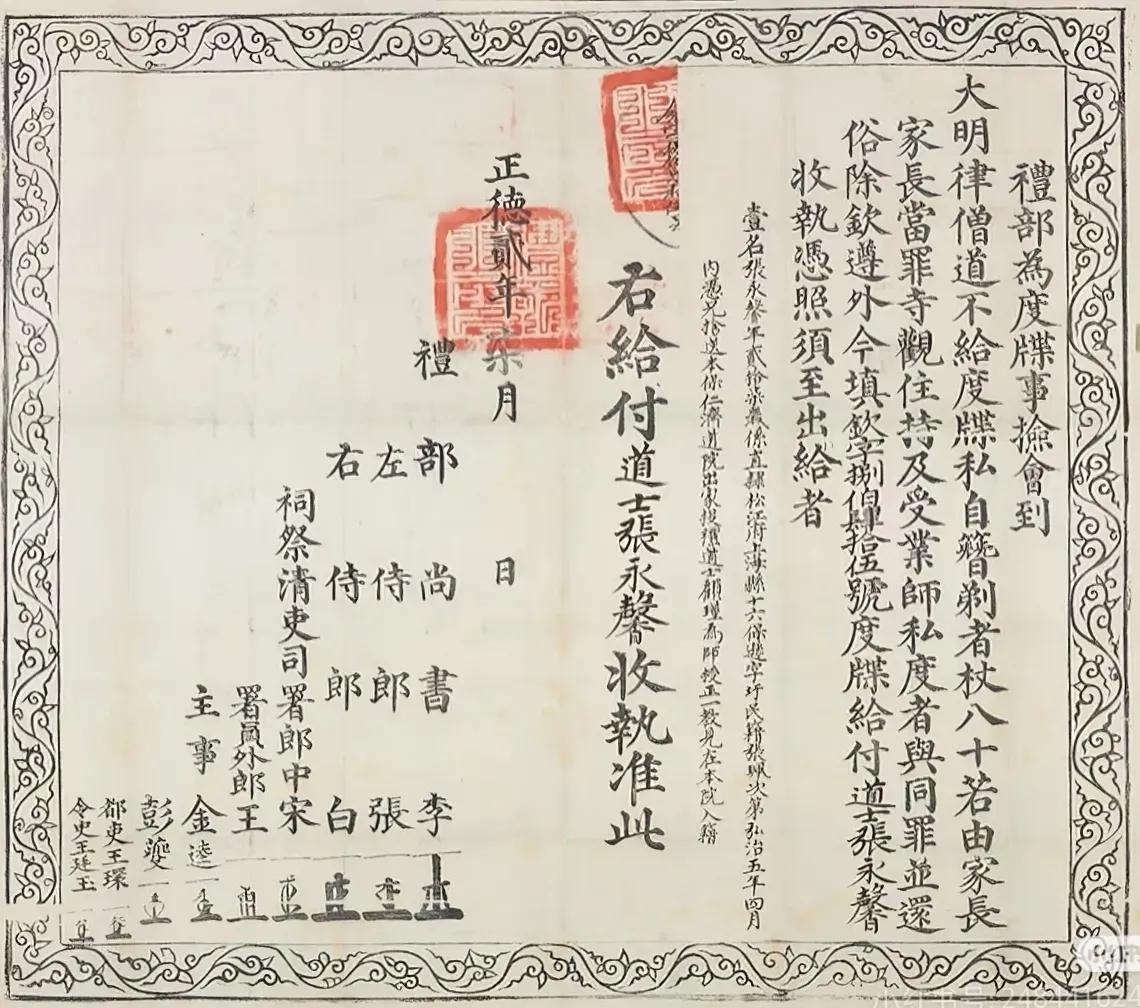 禮部為度牒事撿會到
大明律僧道不給度牒私自簪剃者杖八十若由家長
家長當罪寺觀住持及受業師私度者與同罪並還
俗除欽遵外今填欽字捌伯肆拾伍號度牒給付道士張永馨
收執憑照須至出給者
壹名張永馨年貳拾柒歲係直隸松江府上海縣十六保過字圩民籍張珮次弟弘治五年四月
內憑兄捨送本保仁濟道院出家投禮道士顧瑾為師授正一教見在本院入籍
右給付道士張永馨收執准此
正德貳年柒月 日
禮部尚書李
左侍郎張
右侍郎白
祠祭清吏司署郎中宋
署員外郎王
主事金逵
彭夔
都吏王環
令史王廷玉